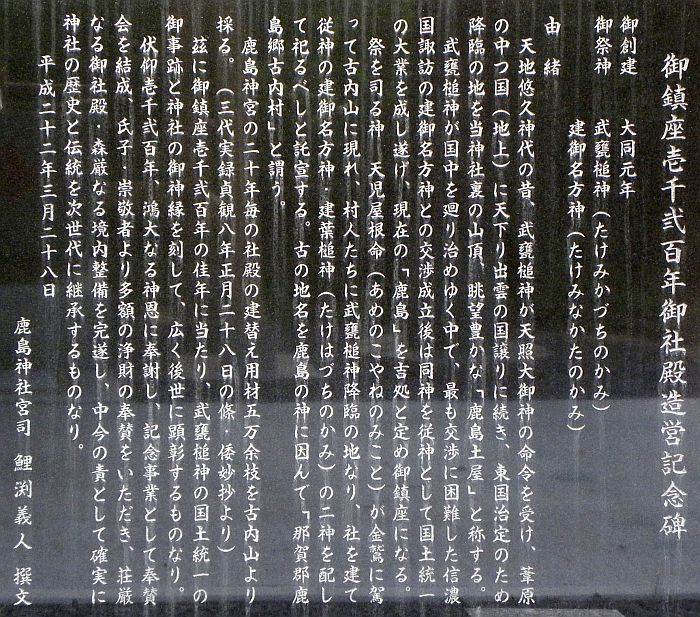 御鎮座壱千弐百年御社殿造営記念碑
御創建　大同元年
御祭神　武甕槌神（たけみかづちのかみ）
建御名方神（たけみなかたのかみ）
由緒
天地悠久神代の昔、武甕槌神が天照大御神の命令を受け、葦原
の中つ国（地上）に天下り出雲の国譲りに続き、東国治定のため
降臨の地を当神社裏の山頂、眺望豊かな「鹿島土屋」と称する。
武甕槌神が国中を廻り治めゆく中で、最も交渉に困難した信濃
国諏訪の建御名方神との交渉成立後は同神を従神として国土統一
の大業を成し遂げ、現在の「鹿島」を吉処と定め御鎮座になる。
祭を司る神　天児屋根命（あめのこやねのみこと）が金鷲に駕
って古内山に現れ、村人たちに武甕槌神降臨の地なり、社を建て
従神の建御名方神・建葉槌神（たけはづちのかみ）の二神を配し
て祀るべしと託宣する。古の地名を鹿島の神に因んで「那賀郡鹿
島郷古内村」と謂う。
鹿島神宮の二十年毎の社殿の建替え用材五万余枝を古内山より
採る。（三代実録貞観八年正月二十八日の條・倭妙抄より）
茲に御鎮座壱千弐百年の佳年に当たり、武甕槌神の国土統一の
御事跡と神社の御神縁を刻して、広く後世に顕彰するものなり。
伏仰壱千弐百年、鴻大なる神恩に奉謝し、記念事業として奉賛
会を結成、氏子・崇敬者より多額の浄財の奉賛をいただき、荘厳
なる御社殿・森厳なる境内整備を完遂し、中今の責として確実に
神社の歴史と伝統を次世代に継承するものなり。
平成二十二年三月二十八日
鹿島神社宮司　鯉渕義人　撰文